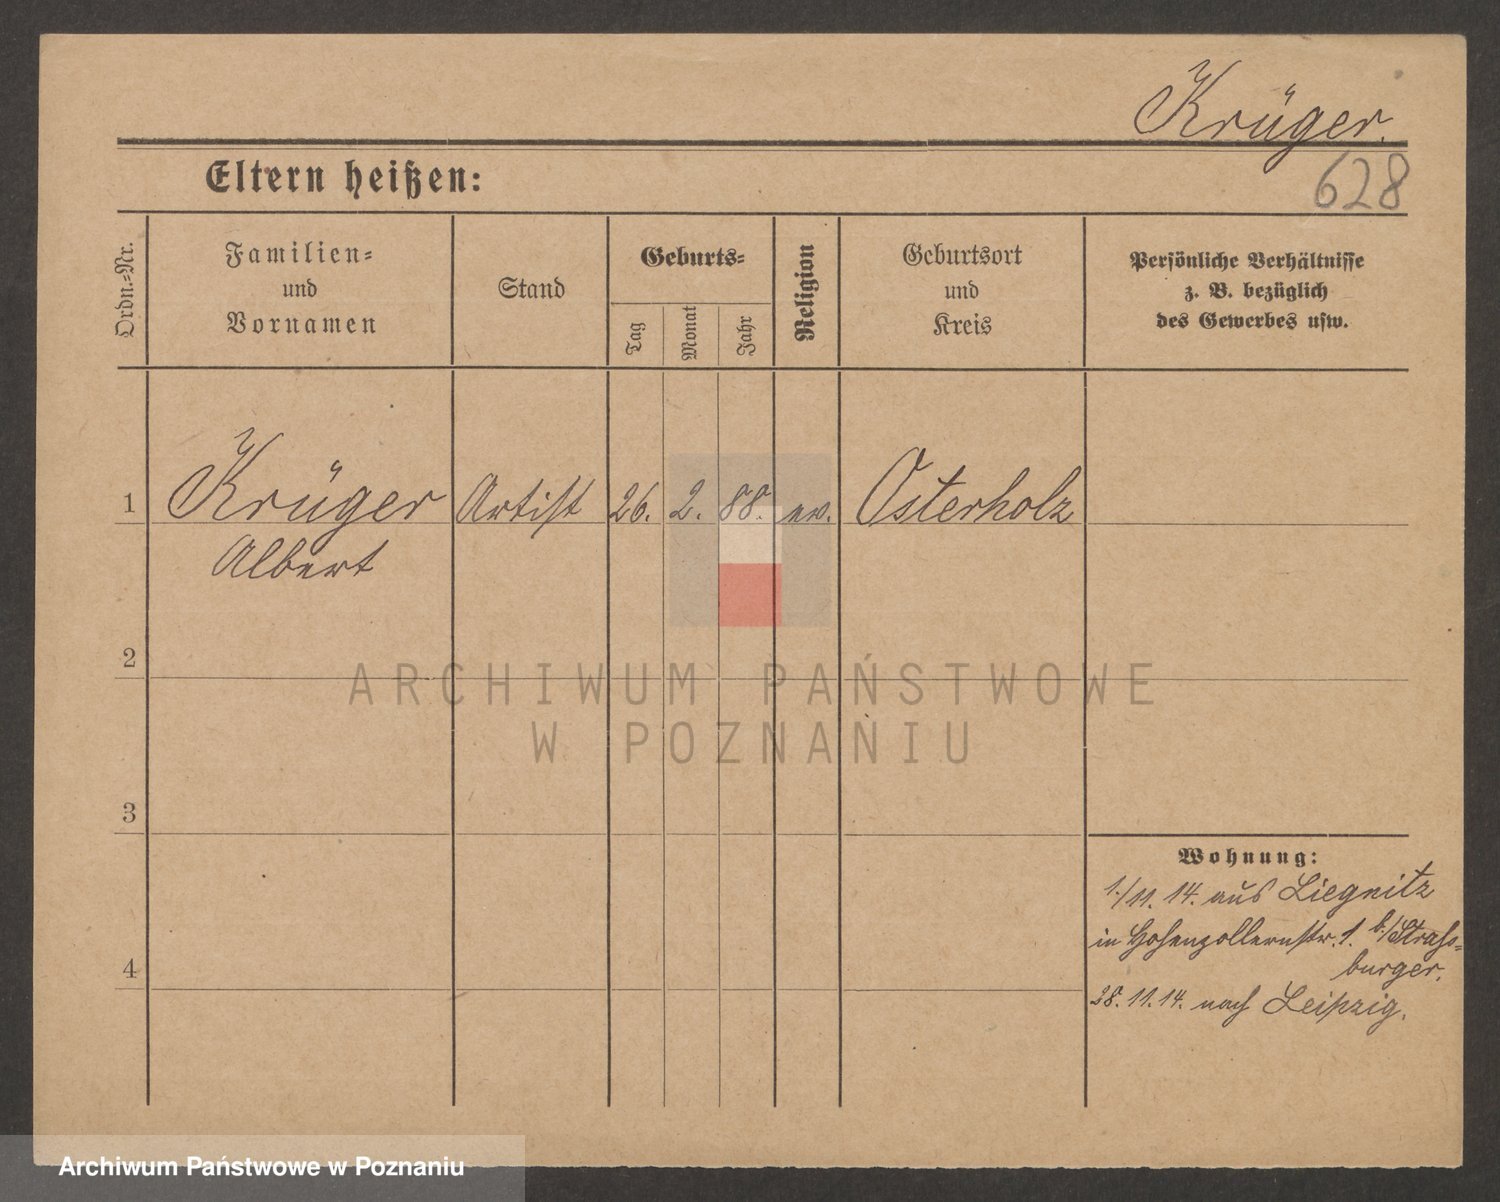 Krüger.
628
Eltern heißen:
Ordn.=Nr.
Familien=
und
Vornamen
Stand
Geburts=
Tag
Monat
Jahr
Religion
Geburtsort
und
Kreis
Persönliche Verhältnisse
z. B. bezüglich
des Gewerbes usw.
1 Krüger Artist 26. 2. 88. ev. Osterholz
Albert
2
ARCHIWUM PAŃSTWOWE
W POZNANIU
3
Wohnung:
1./11. 14. aus Liegnitz
in Hohenzollernstr. 1. b./Strass=
burger.
4
28. 11. 14. nach Leipzig.
Archiwum Państwowe w Poznaniu